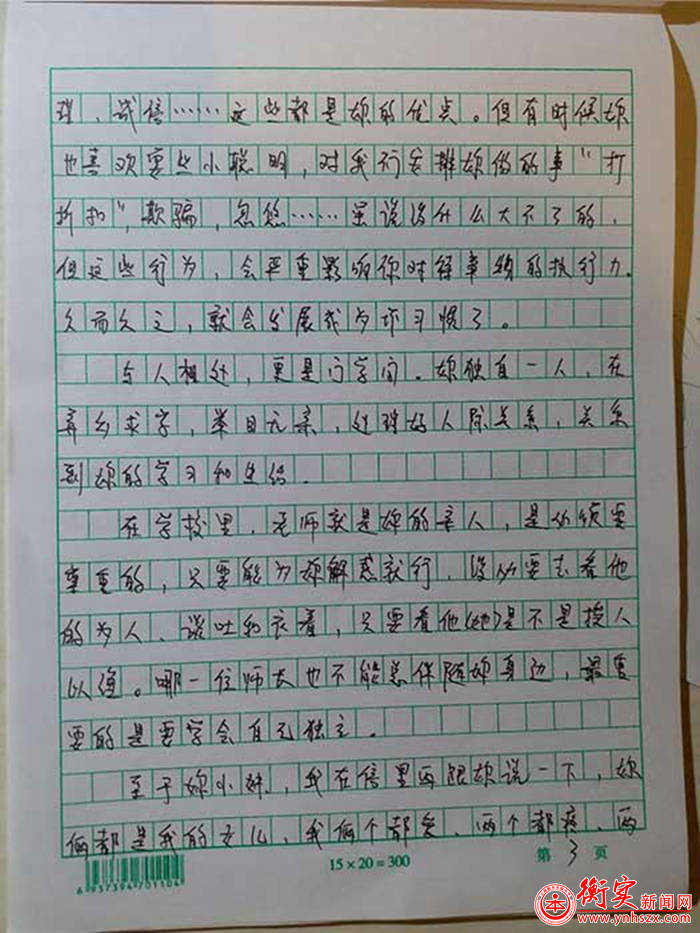 理、诚信……这些都是妳的优点。但有时候妳
也喜欢耍些小聪明，对我所安排妳做的事“打
折扣”，欺骗，忽悠……虽说没什么大不了的，
但这些行为，会严重影响你对待事物的执行力。
久而久之，就会发展成为坏习惯了。
与人相处，更是门学问。妳独自一人，在
异乡求学，举目无亲，处理好人际关系，关系
到妳的学习和生活。
在学校里，老师就是妳的亲人，是必须要
尊重的，只要能为妳解惑就行，没必要去看他
的为人、谈吐和衣着，只要看他(她)是不是授人
以渔。哪一位师长也不能总伴随妳身边，最重
要的是要学会自己独立。
至于妳小妹，我在信里再跟妳说一下，妳
俩都是我的女儿，我俩个都爱、两个都疼、两
6937394701104
15×20=300
第3页
衡实新闻网
www.ynhszx.com